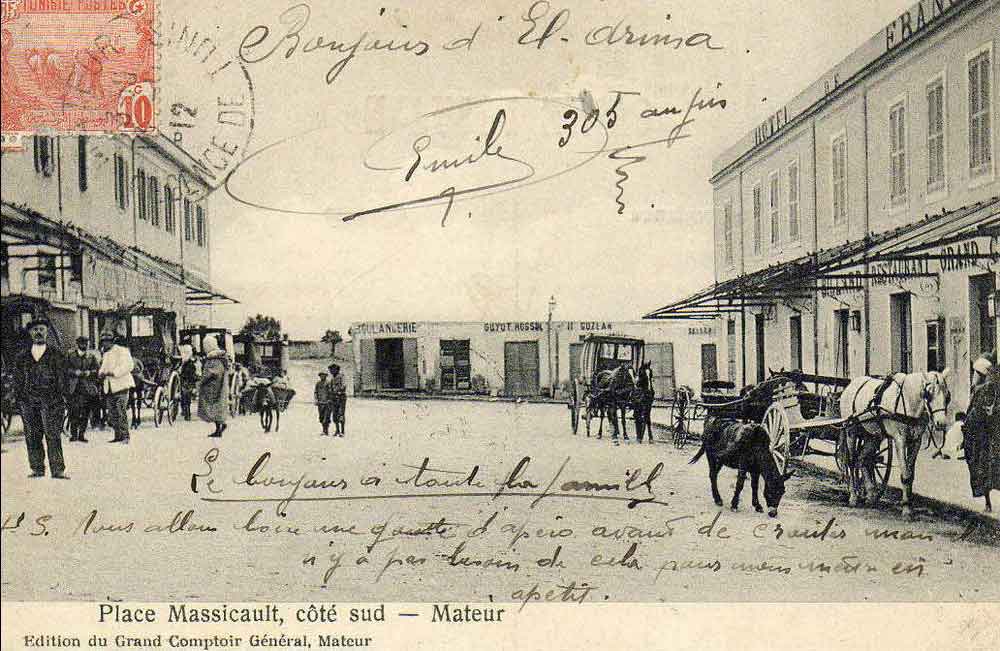 TUNISIE POSTES
15
10
12
Bonjours d' El-drima
305 au jus
Emile
HÔTEL DE FRANC
BOULANGERIE
GUYOT.ROSSO
GOZLAN
RESTAURANT GRAND
Le bonjour a toute la famille
P.S. Nous allons boire une goutte d'apéro avant de crouter mais
n'y a pas besoin de cela pour nous mettre en
apétit.
Place Massicault, côté sud — Mateur
Edition du Grand Comptoir Général, Mateur